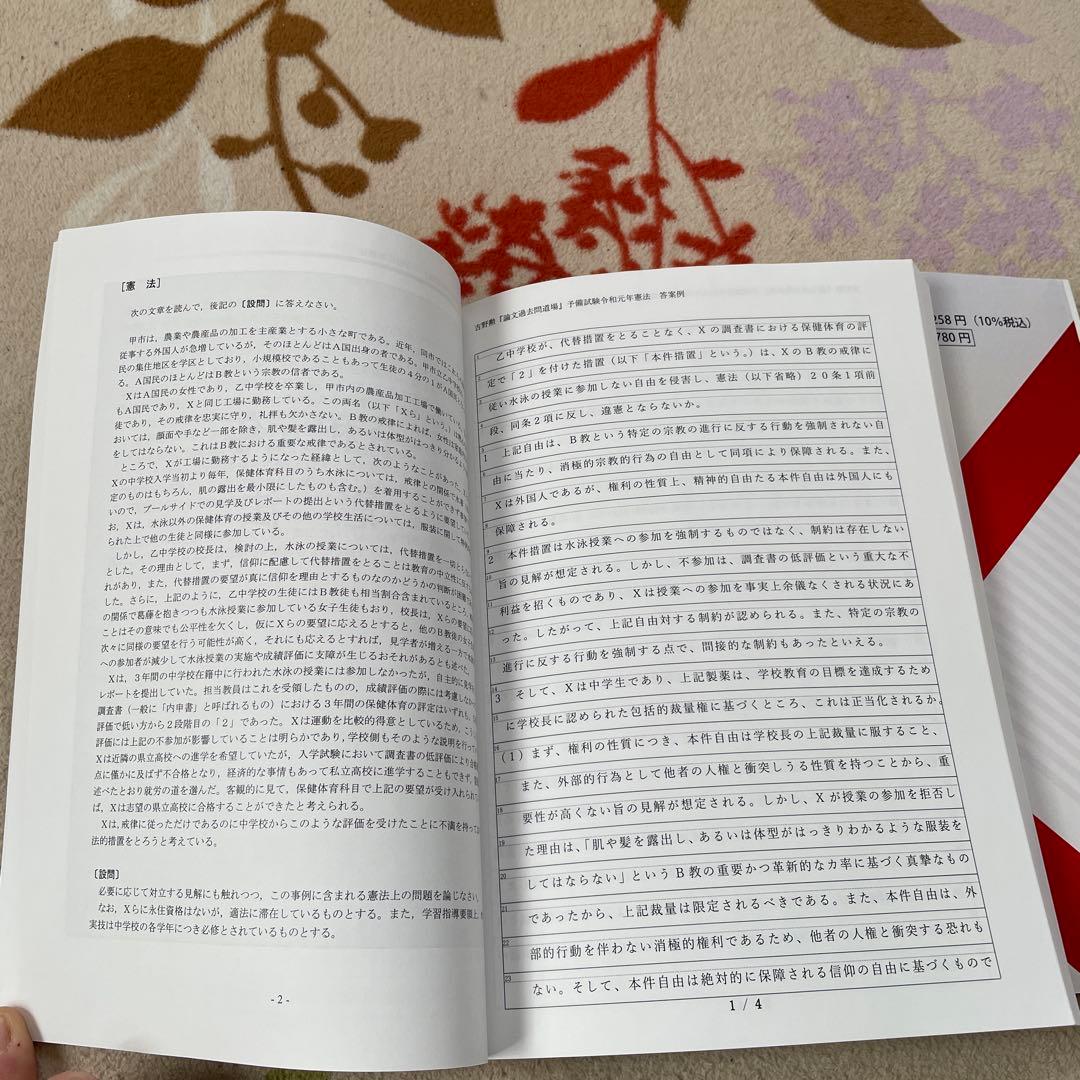 [憲 法]
次の文章を読んで，後記の〔設問〕に答えなさい。
甲市は，農業や農産品の加工を主産業とする小さな町である。近年，同市ではこれらの
従事する外国人が急増しているが，そのほとんどはＡ国出身の者である。甲市立乙中学校は
民の集住地区を学区としており，小規模校であることもあって生徒の４分の１がＡ国民
る。Ａ国民のほとんどはＢ教という宗教の信者である。
ＸはＡ国民の女性であり，乙中学校を卒業し，甲市内の農産品加工工場で働いている。
もＡ国民であり，Ｘと同じ工場に勤務している。この両名（以下「Ｘら」という。）は
徒であり，その戒律を忠実に守り，礼拝も欠かさない。Ｂ教の戒律によれば，女性は
おいては，顔面や手など一部を除き，肌や髪を露出し，あるいは体型がはっきり分かる
をしてはならない。これはＢ教における重要な戒律であるとされている。
ところで，Ｘが工場に勤務するようになった経緯として，次のようなことがあった。
Ｘの中学校入学当初より毎年，保健体育科目のうち水泳については，戒律との関係で水着
定のものはもちろん，肌の露出を最小限にしたものも含む。）を着用することができず
いので，プールサイドでの見学及びレポートの提出という代替措置をとるように要望して
お，Ｘは，水泳以外の保健体育の授業及びその他の学校生活については，服装に関して
られた上で他の生徒と同様に参加している。
しかし，乙中学校の校長は，検討の上，水泳の授業については，代替措置を一切とら
とした。その理由として，まず，信仰に配慮して代替措置をとることは教育の中立性に反
れがあり，また，代替措置の要望が真に信仰を理由とするものなのかどうかの判断が困難
した。さらに，上記のように，乙中学校の生徒にはＢ教徒も相当割合含まれているところ
の関係で葛藤を抱きつつも水泳授業に参加している女子生徒もおり，校長は，Ｘらの要望に
ことはその意味でも公平性を欠くし，仮にＸらの要望に応えるとすると，他のＢ教徒の女子
次々に同様の要望を行う可能性が高く，それにも応えるとすれば，見学者が増える一方で
への参加者が減少して水泳授業の実施や成績評価に支障が生じるおそれがあるとも述べた
Ｘは，３年間の中学校在籍中に行われた水泳の授業には参加しなかったが，自主的に見学
レポートを提出していた。担当教員はこれを受領したものの，成績評価の際には考慮しなか
調査書（一般に「内申書」と呼ばれるもの）における３年間の保健体育の評定はいずれも，
評価で低い方から２段階目の「２」であった。Ｘは運動を比較的得意としているため，こう
評価には上記の不参加が影響していることは明らかであり，学校側もそのような説明を行って
Ｘは近隣の県立高校への進学を希望していたが，入学試験において調査書の低評価により合格
点に僅かに及ばず不合格となり，経済的な事情もあって私立高校に進学することもできず，
述べたとおり就労の道を選んだ。客観的に見て，保健体育科目で上記の要望が受け入れられて
ば，Ｘは志望の県立高校に合格することができたと考えられる。
Ｘは，戒律に従っただけであるのに中学校からこのような評価を受けたことに不満を持って
法的措置をとろうと考えている。
〔設問〕
必要に応じて対立する見解にも触れつつ，この事例に含まれる憲法上の問題を論じなさい。
なお，Ｘらに永住資格はないが，適法に滞在しているものとする。また，学習指導要領上
実技は中学校の各学年につき必修とされているものとする。
- 2 -
吉野勲『論文過去問道場』予備試験令和元年憲法 答案例
1 乙中学校が、代替措置をとることなく、Ｘの調査書における保健体育の評
2 定で「２」を付けた措置（以下「本件措置」という。）は、ＸのＢ教の戒律に
3 従い水泳の授業に参加しない自由を侵害し、憲法（以下省略）２０条１項前
4 段、同条２項に反し、違憲とならないか。
5 １ 上記自由は、Ｂ教という特定の宗教の進行に反する行動を強制されない自
6 由に当たり、消極的宗教的行為の自由として同項により保障される。また、
7 Ｘは外国人であるが、権利の性質上、精神的自由たる本件自由は外国人にも
8 保障される。
9 ２ 本件措置は水泳授業への参加を強制するものではなく、制約は存在しない
10 旨の見解が想定される。しかし、不参加は、調査書の低評価という重大な不
11 利益を招くものであり、Ｘは授業への参加を事実上余儀なくされる状況にあ
12 った。したがって、上記自由対する制約が認められる。また、特定の宗教の
13 進行に反する行動を強制する点で、間接的な制約もあったといえる。
14 ３ そして、Ｘは中学生であり、上記製薬は、学校教育の目標を達成するため
15 に学校長に認められた包括的裁量権に基づくところ、これは正当化されるか。
16 （１）まず、権利の性質につき、本件自由は学校長の上記裁量に服すること、
17 また、外部的行為として他者の人権と衝突しうる性質を持つことから、重
18 要性が高くない旨の見解が想定される。しかし、Ｘが授業の参加を拒否し
19 た理由は、「肌や髪を露出し、あるいは体型がはっきりわかるような服装を
20 してはならない」というＢ教の重要かつ革新的なカ率に基づく真摯なもの
21 であったから、上記裁量は限定されるべきである。また、本件自由は、外
22 部的行動を伴わない消極的権利であるため、他者の人権と衝突する恐れも
23 ない。そして、本件自由は絶対的に保障される信仰の自由に基づくもので
1 / 4
258円（10%税込）
780円